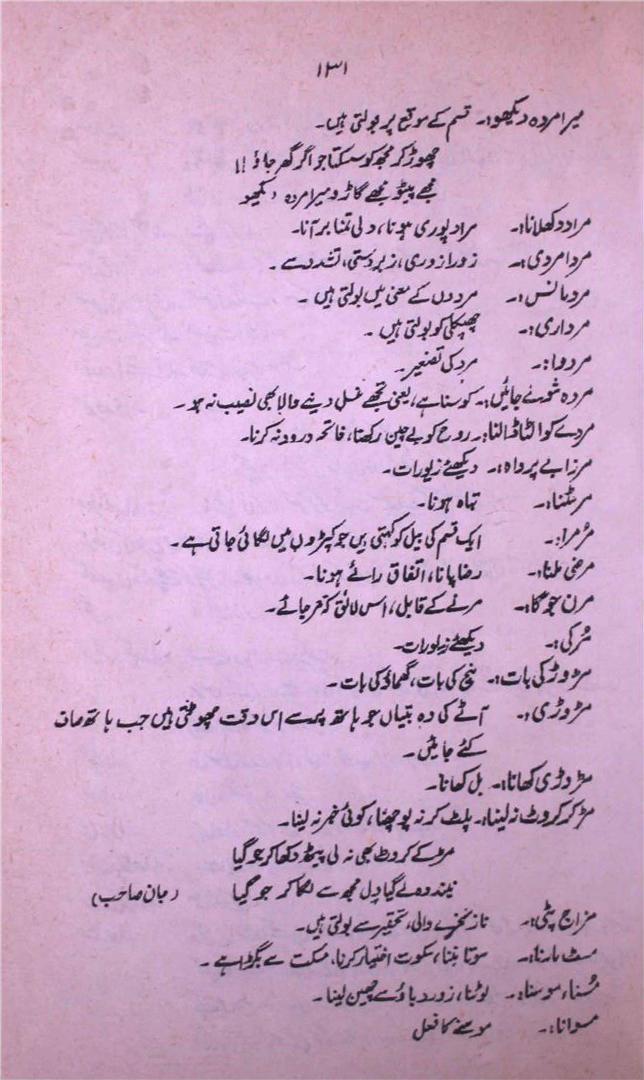 ۱۳۱
میرا مردہ دیکھو:۔ قسم کے موقع پر بولتی ہیں۔
چھوڑ کر مجھ کو سسکتا جو اگر گھر جاؤ !!
مجھے پیٹو مجھے گاڑو میرا مردہ دیکھو
مراد دکھلانا:۔ مراد پوری ہونا، دلی تمنا بر آنا۔
مردا مردی:۔ زورا زوری، زبردستی، تشدد سے۔
مردمانس:۔ مردوں کے معنی میں بولتی ہیں۔
مرداری:۔ چھپکلی کو بولتی ہیں۔
مردوا:۔ مرد کی تصغیر۔
مردہ شوئے جائیں:۔ کوسنا ہے، یعنی تجھے غسل دینے والا بھی نصیب نہ ہو۔
مردے کو الٹا ڈالنا:۔ روح کو بے چین رکھنا، فاتحہ درود نہ کرنا۔
مرزا بے پرواہ:۔ دیکھئے زیورات۔
مر مٹنا:۔ تباہ ہونا۔
مُرمرا:۔ ایک قسم کی بیل کو کہتی ہیں جو کپڑوں میں لگائی جاتی ہے۔
مرضی ملنا:۔ رضا پانا، اتفاق رائے ہونا۔
مرن جوگا:۔ مرنے کے قابل، اس لائق کہ مر جائے۔
مُرکی:۔ دیکھئے زیورات۔
مڑوڑ کی بات:۔ پیچ کی بات، گھماؤ کی بات۔
مڑوڑی:۔ آٹے کی وہ بتیاں جو ہاتھ پر سے اس وقت چھوٹتی ہیں جب ہاتھ صاف
کئے جائیں۔
مڑوڑی کھانا:۔ بل کھانا۔
مڑ کر کروٹ نہ لینا:۔ پلٹ کر نہ پوچھنا، کوئی خبر نہ لینا۔
مڑ کے کروٹ بھی نہ لی پیٹھ دکھا کر جو گیا
نیند وہ لے گیا دل مجھ سے لگا کر جو گیا (جان صاحب)
مزاج پٹی:۔ ناز نخرے والی، تحقیر سے بولتی ہیں۔
مسٹ مارنا:۔ سوتا بننا، سکوت اختیار کرنا، مسکت سے بگڑا ہے۔
مُسنا، موسنا:۔ لوٹنا، زور دباؤ سے چھین لینا۔
مسوانا:۔ موسنے کا فعل